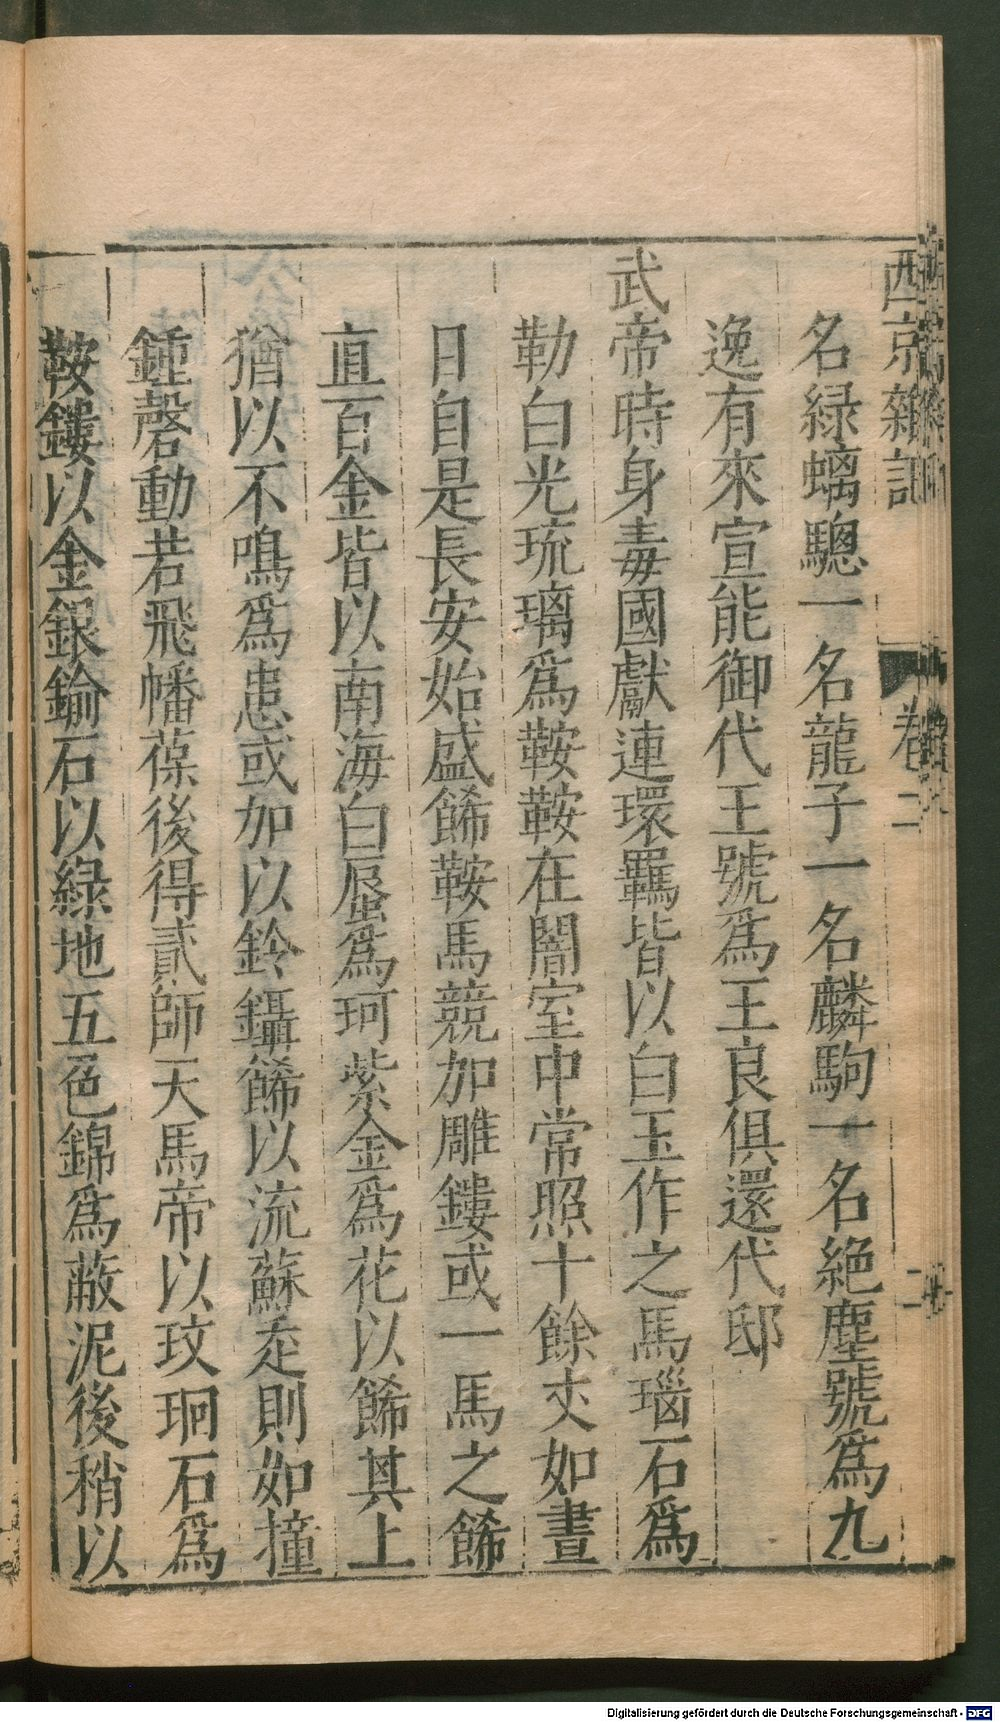 西京雜記 卷二 二
名緑螭驄一名龍子一名麟駒一名絶塵號爲九
逸有來宣能御代王號爲王良俱還代邸
武帝時身毒國獻連環羈皆以白玉作之馬瑙石爲
勒白光琉璃爲鞍鞍在闇室中常照十餘丈如晝
日自是長安始盛餙鞍馬競加雕鏤或一馬之餙
直百金皆以南海白蜃爲珂紫金爲花以餙其上
猶以不鳴爲患或加以鈴鑷餙以流蘇走則如撞
鍾磬動若飛幡葆後得貳師天馬帝以玟珛石爲
鞍鏤以金銀鍮石以緑地五色錦爲蔽泥後稍以
Digitalisierung gefördert durch die Deutsche Forschungsgemeinschaft - DFG